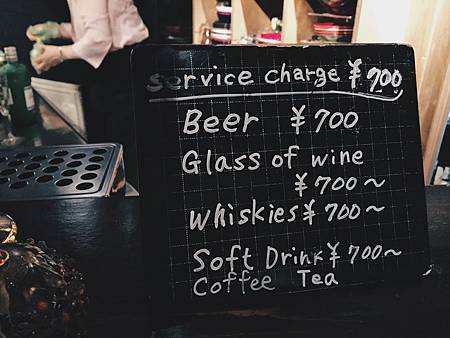 service charge ¥700
Beer ¥700
Glass of wine
¥700~
Whiskies ¥700~
Soft Drink ¥700~
Coffee Tea